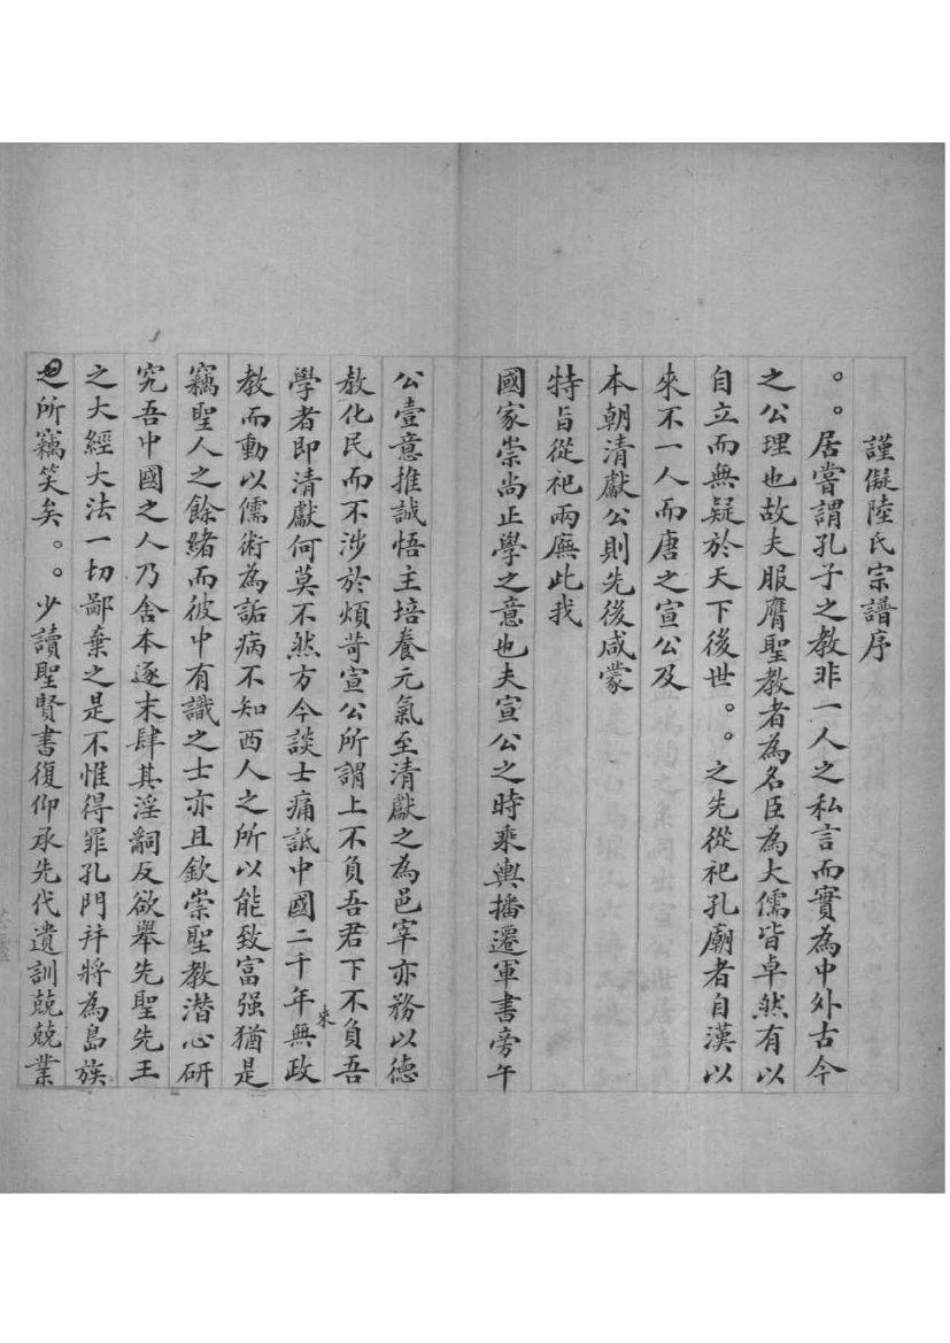 謹儗陸氏宗譜序
。。居嘗謂孔子之教非一人之私言而實為中外古今
之公理也故夫服膺聖教者為名臣為大儒皆卓然有以
自立而無疑於天下後世。。之先從祀孔廟者自漢以
來不一人而唐之宣公及
本朝清獻公則先後咸蒙
特旨從祀兩廡此我
國家崇尚正學之意也夫宣公之時乘輿播遷軍書旁午
公壹意推誠悟主培養元氣至清獻之為邑宰亦務以德
教化民而不涉於煩苛宣公所謂上不負吾君下不負吾
學者即清獻何莫不然方今談士痛詆中國二千年來無政
教而動以儒術為詬病不知西人之所以能致富强猶是
竊聖人之餘緒而彼中有識之士亦且欽崇聖教潛心研
究吾中國之人乃舍本逐末肆其淫詞反欲舉先聖先王
之大經大法一切鄙棄之是不惟得罪孔門并將為島族
所竊笑矣。。少讀聖賢書復仰承先代遺訓兢兢業